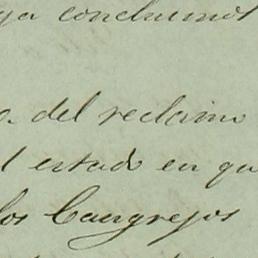 ya concluimos
del reclamo
estado en qu
los Cangrejos